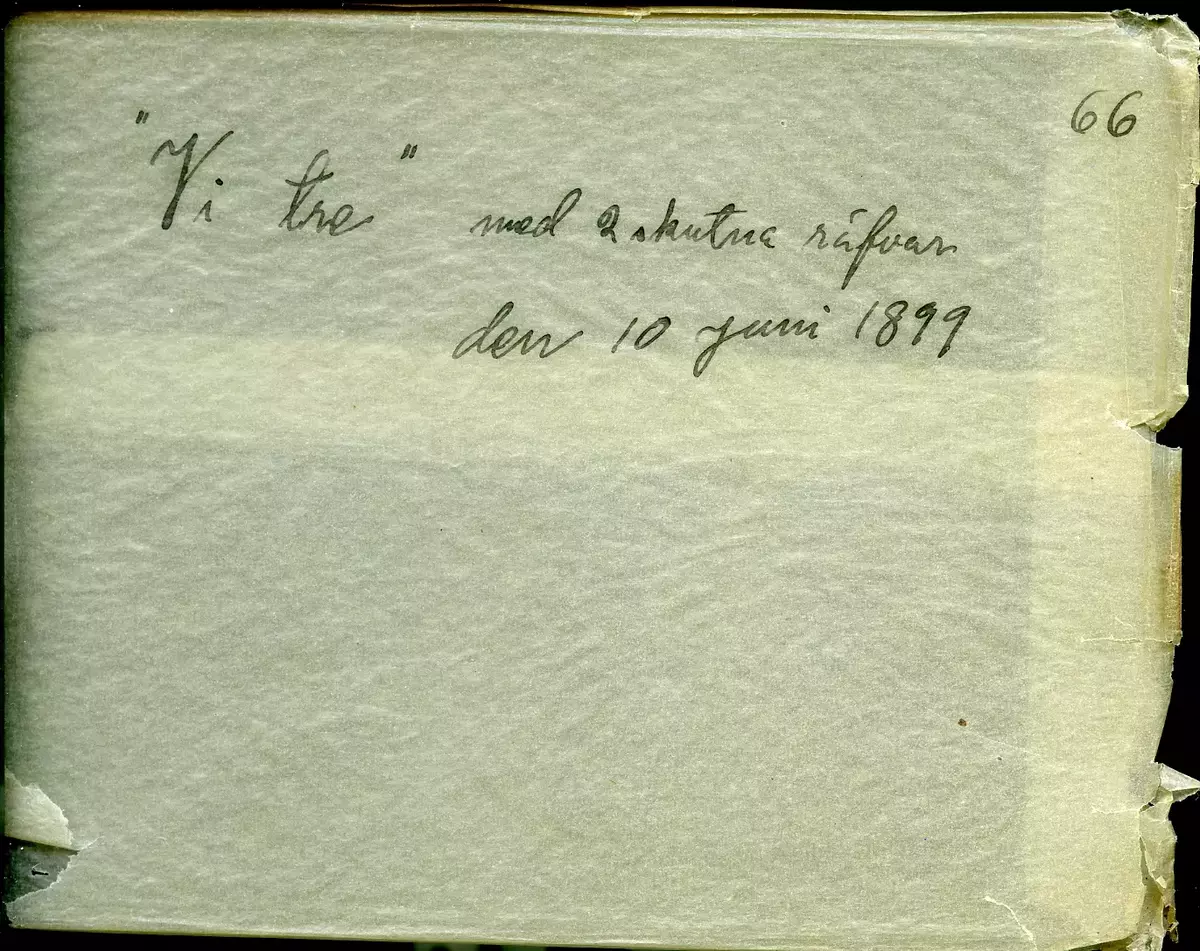 66
"Vi tre" med 2 skutna räfvar
den 10 juni 1899